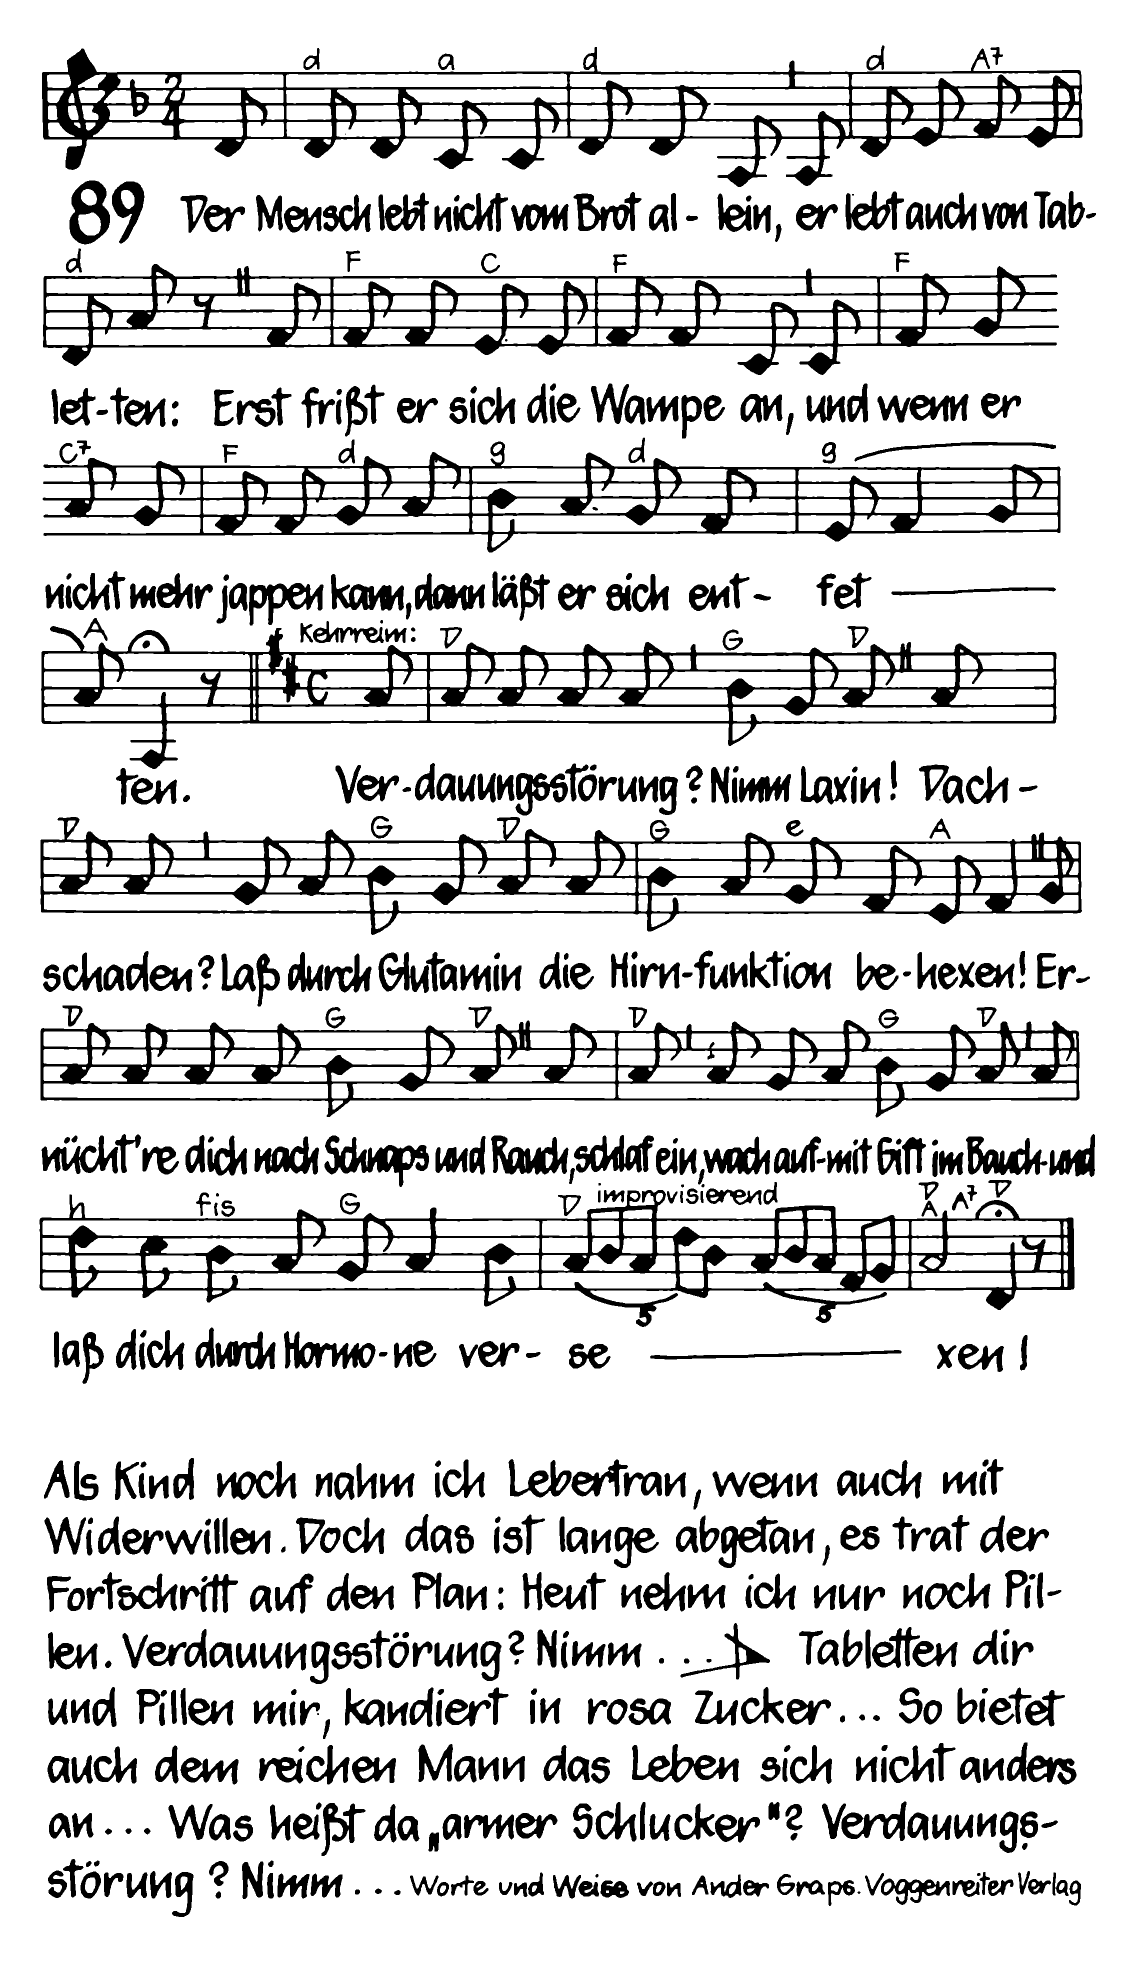 d a d d A7
2/4
89 Der Mensch lebt nicht vom Brot al- lein, er lebt auch von Tab-
d F C F F
let-ten: Erst frißt er sich die Wampe an, und wenn er
C7 F d g d g
nicht mehr jappen kann, dann läßt er sich ent- fet
A Kehrreim: D G D
C
ten. Ver-dauungsstörung? Nimm Laxin! Dach-
D G D G e A
schaden? Laß durch Glutamin die Hirn-funktion be-hexen! Er-
D G D D G D
nücht're dich nach Schnaps und Rauch, schlaf ein, wach auf-mit Gift im Bauch-und
h fis G D improvisierend D A A7 D
5 5
laß dich durch Hormo-ne ver- se xen!
Als Kind noch nahm ich Lebertran, wenn auch mit
Widerwillen. Doch das ist lange abgetan, es trat der
Fortschritt auf den Plan: Heut nehm ich nur noch Pil-
len. Verdauungsstörung? Nimm ... Tabletten dir
und Pillen mir, kandiert in rosa Zucker... So bietet
auch dem reichen Mann das Leben sich nicht anders
an... Was heißt da „armer Schlucker"? Verdauungs-
störung? Nimm ... Worte und Weise von Ander Graps. Voggenreiter Verlag